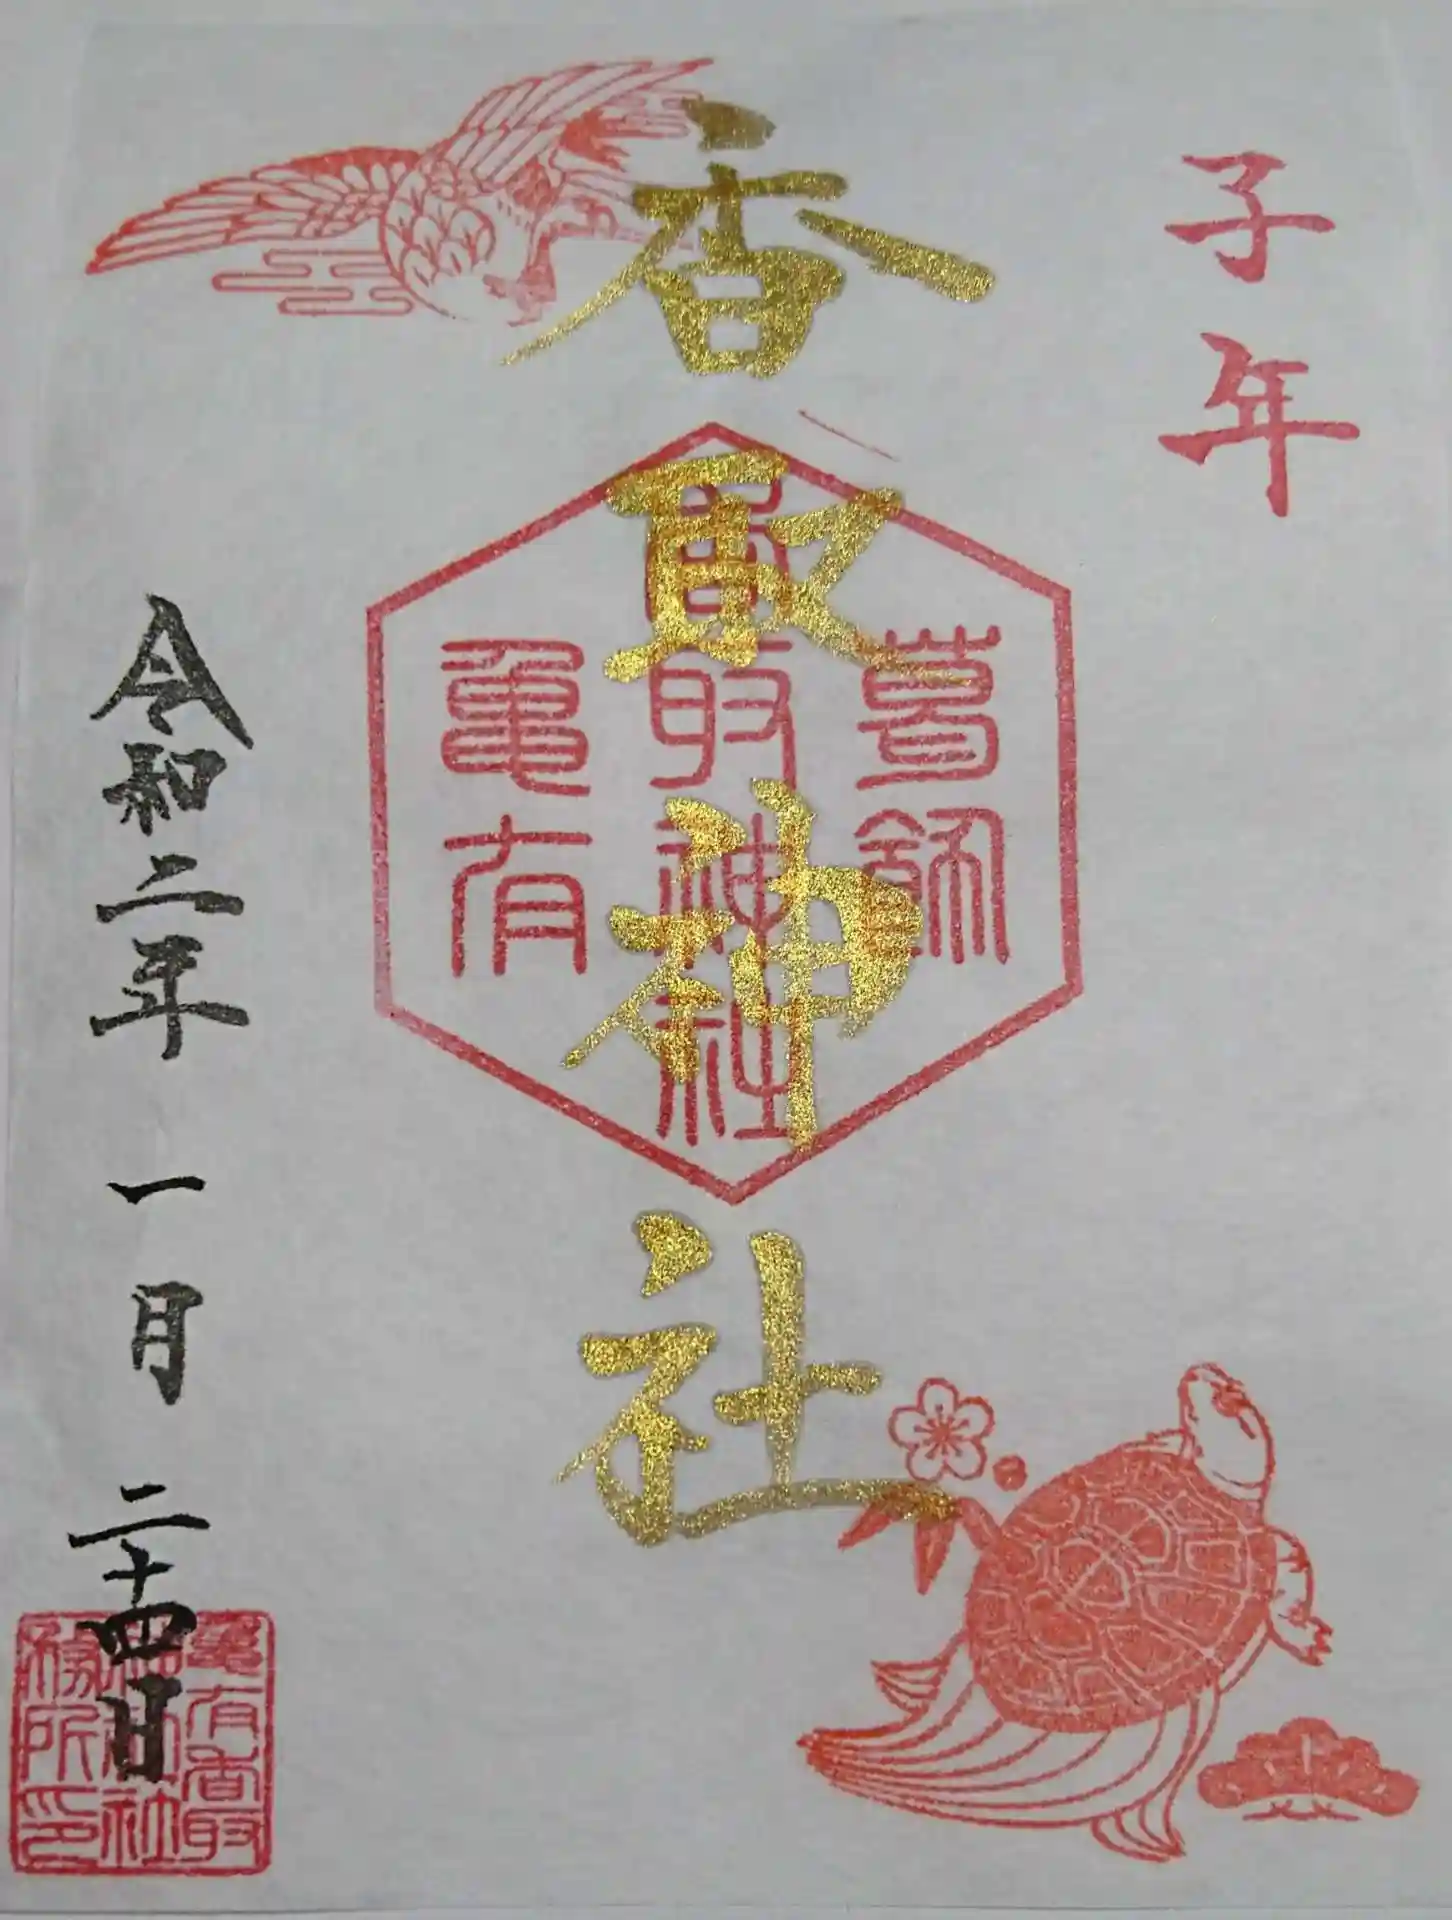 子年
香取神社
葛飾
香取神社
亀有
令和二年 一月 二十四日
亀有香取
神社社
務所印